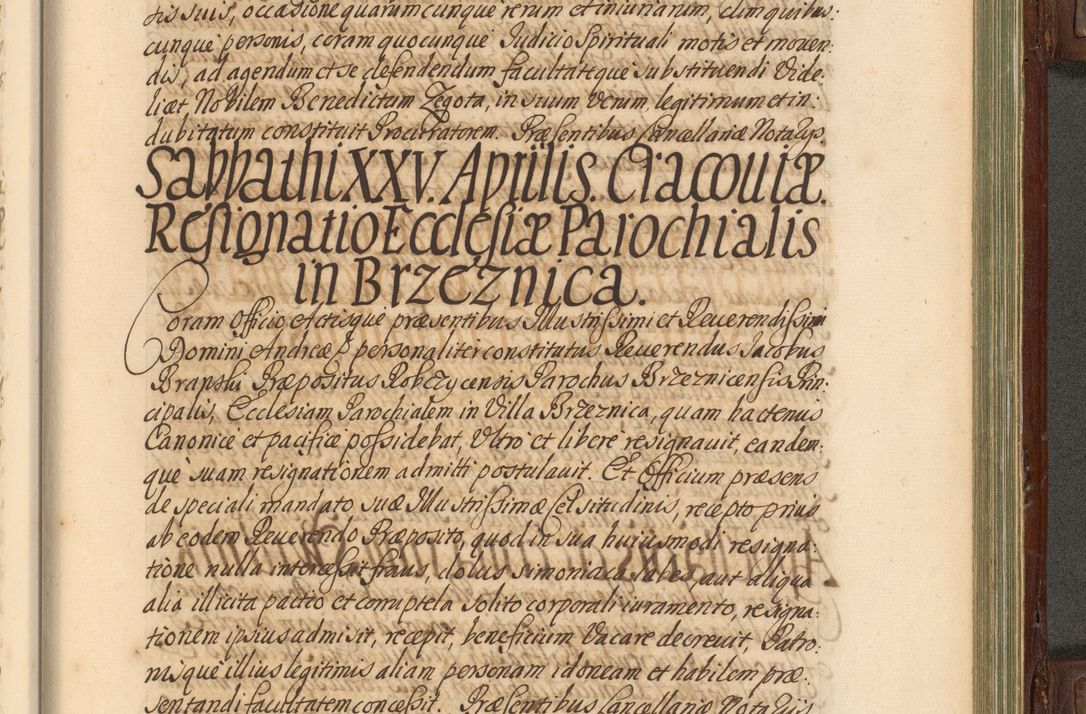 tis suis, occasione quarumcunque rerum et iniuriarum, cum quibus:
cunque personis, coram quocunque Judicio Spirituali motis et mouen:
dis, ad agendum et se defendendum facultateque substituendi Vide:
licet Nobilem Benedictum Zegota, in suum Verum legitimum et in:
dubitatum constituit Procuratorem. Præsentibus Cancellariæ Notarys.
Sabbathi XXV. Aprilis. Cracouiæ.
Resignatio Ecclesiæ Parochialis
in Brzeznica.
Coram Officio Actisque præsentibus Illustrissimi et Reuerendissimi
Domini Andreæ pp personaliter constitutus Reuerendus Jacobus
Branski Præpositus Robczycensis Parochus Brzeznicensis Prin:
cipalis, Ecclesiam Parochialem in Villa Brzeznica, quam hactenus
Canonice et pacifice possidebat, Vltro et libere resignauit, eandem:
que suam resignationem admitti postulauit. Et Officium præsens
de speciali mandato suæ Illustrissimæ Celsitudinis, recepto prius
ab eodem Reuerendo Præposito, quod in sua huiusmodi resigna:
tione nulla intercessit fraus, dolus simoniaca labes, aut aliqua
alia illicita pactio et corruptela solito corporali iuramento, resigna:
tionem ipsius admisit, recepit, beneficium Vacare decreuit, Patro:
nisque illius legitimis aliam personam idoneam et habilem præ:
sentandi facultatem concessit. Præsentibus Cancellariæ Notarijs